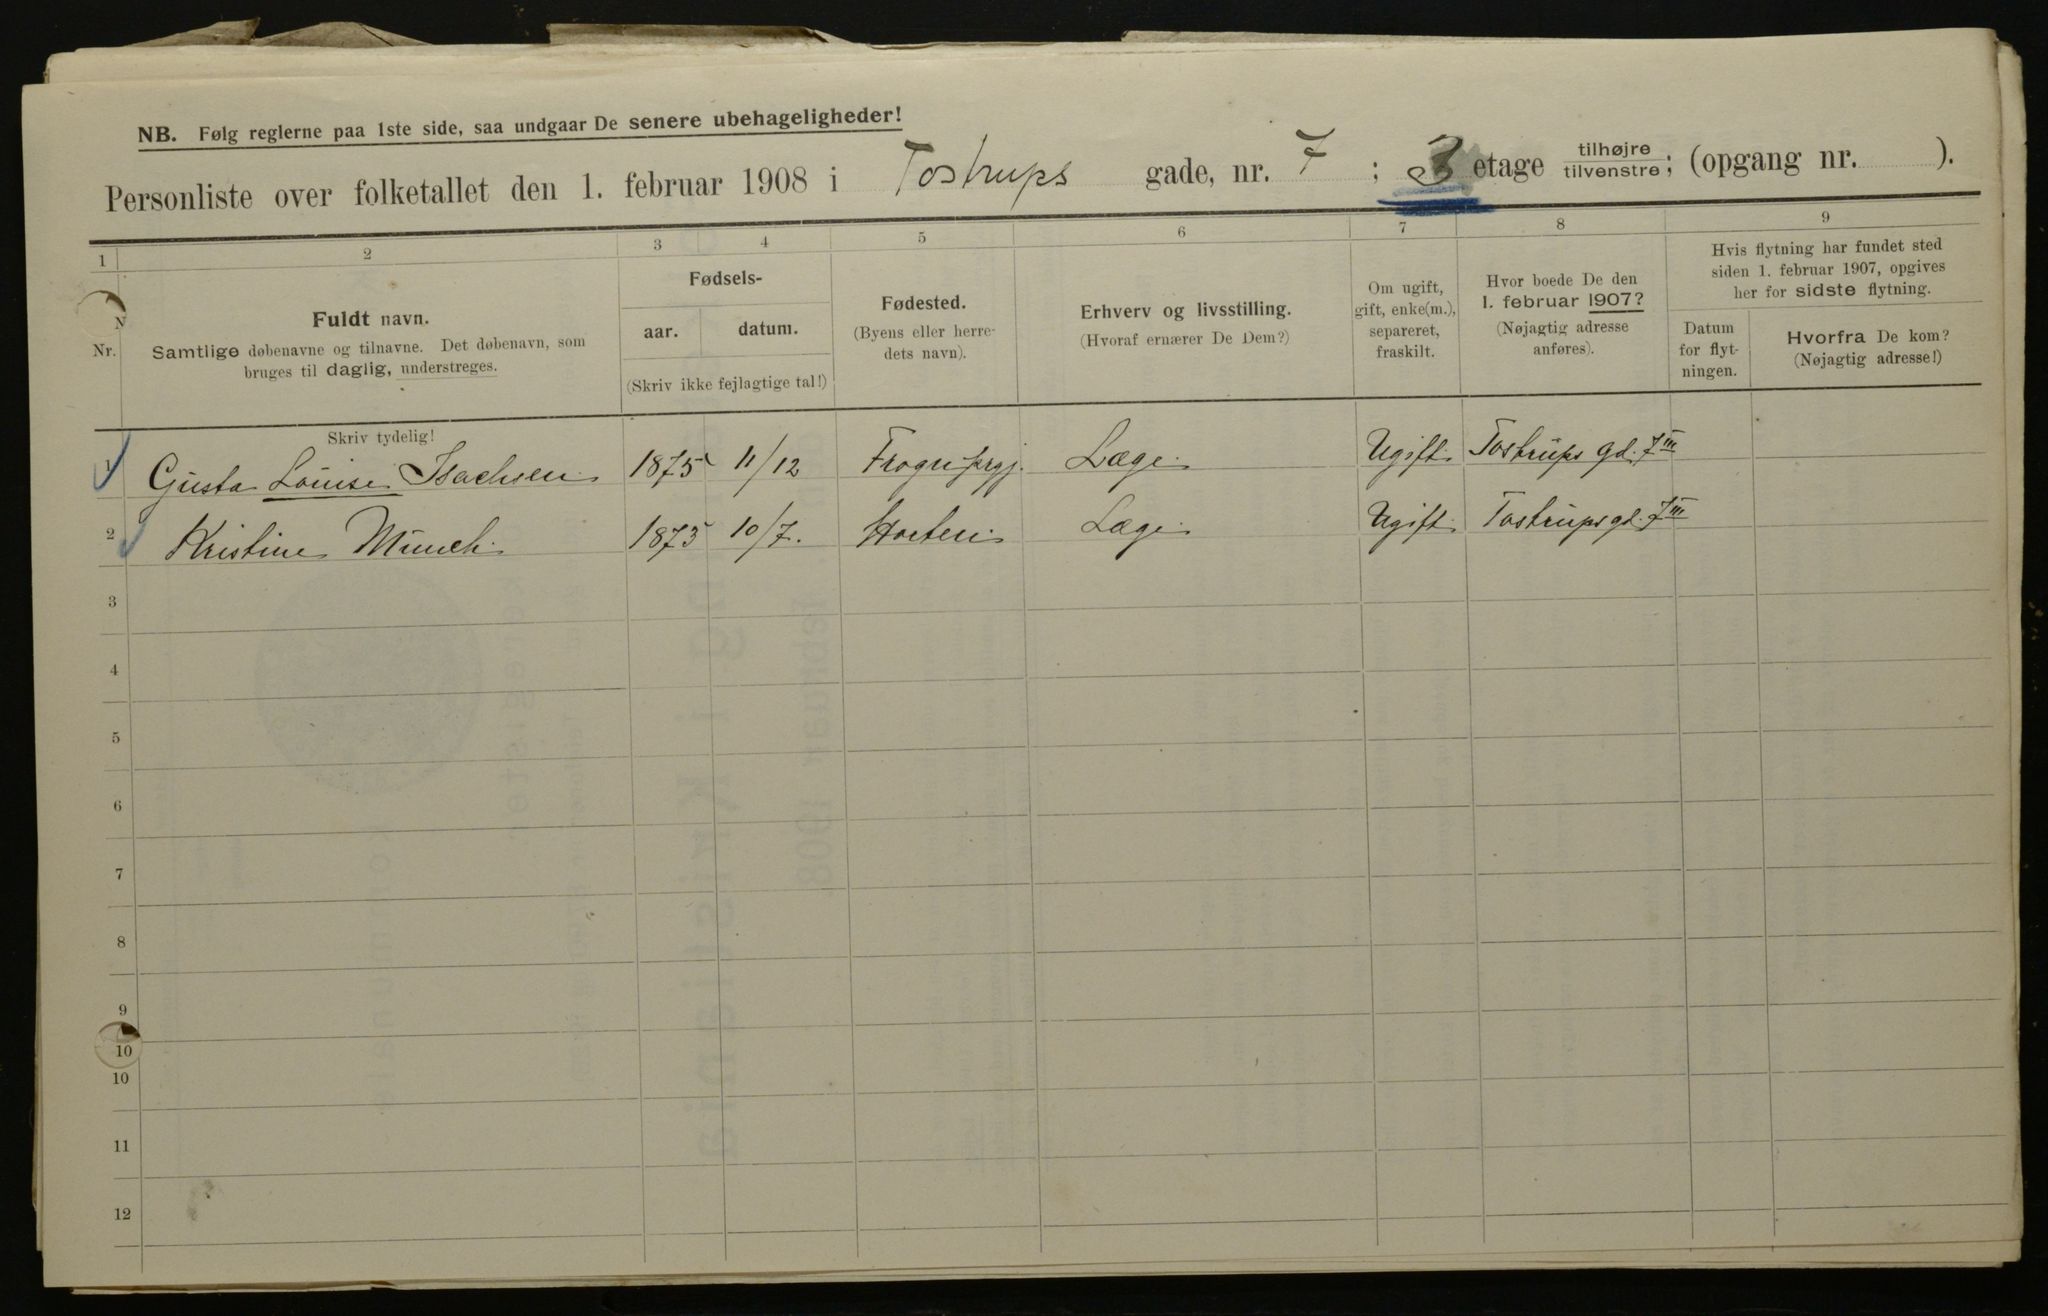 NB. Følg reglerne paa 1ste side, saa undgaar De senere ubehageligheder!
Personliste over folketallet den 1. februar 1908 i Tostrups gade, nr. 7; 3 etage tilhøjre/tilvenstre; (opgang nr. ).
1 2 3 4 5 6 7 8 9
Nr.
Fuldt navn.
Samtlige døbenavne og tilnavne. Det døbenavn, som
bruges til daglig, understreges.
Fødsels-
aar. datum.
(Skriv ikke fejlagtige tal!)
Fødested.
(Byens eller herre-
dets navn).
Erhverv og livsstilling.
(Hvoraf ernærer De Dem?)
Om ugift,
gift, enke(m.),
separeret,
fraskilt.
Hvor boede De den
1. februar 1907?
(Nøjagtig adresse
anføres).
Hvis flytning har fundet sted
siden 1. februar 1907, opgives
her for sidste flytning.
Datum
for flyt-
ningen.
Hvorfra De kom?
(Nøjagtig adresse!)
Skriv tydelig!
1 Gusta Louise Isachsen 1875 11/12 Frogn prgj. Læge Ugift Tostrups gd. 7 III
2 Kristine Munch 1873 10/7. Horten Læge Ugift Tostrups gd. 7 III
3
4
5
6
7
8
9
10
10
11
12